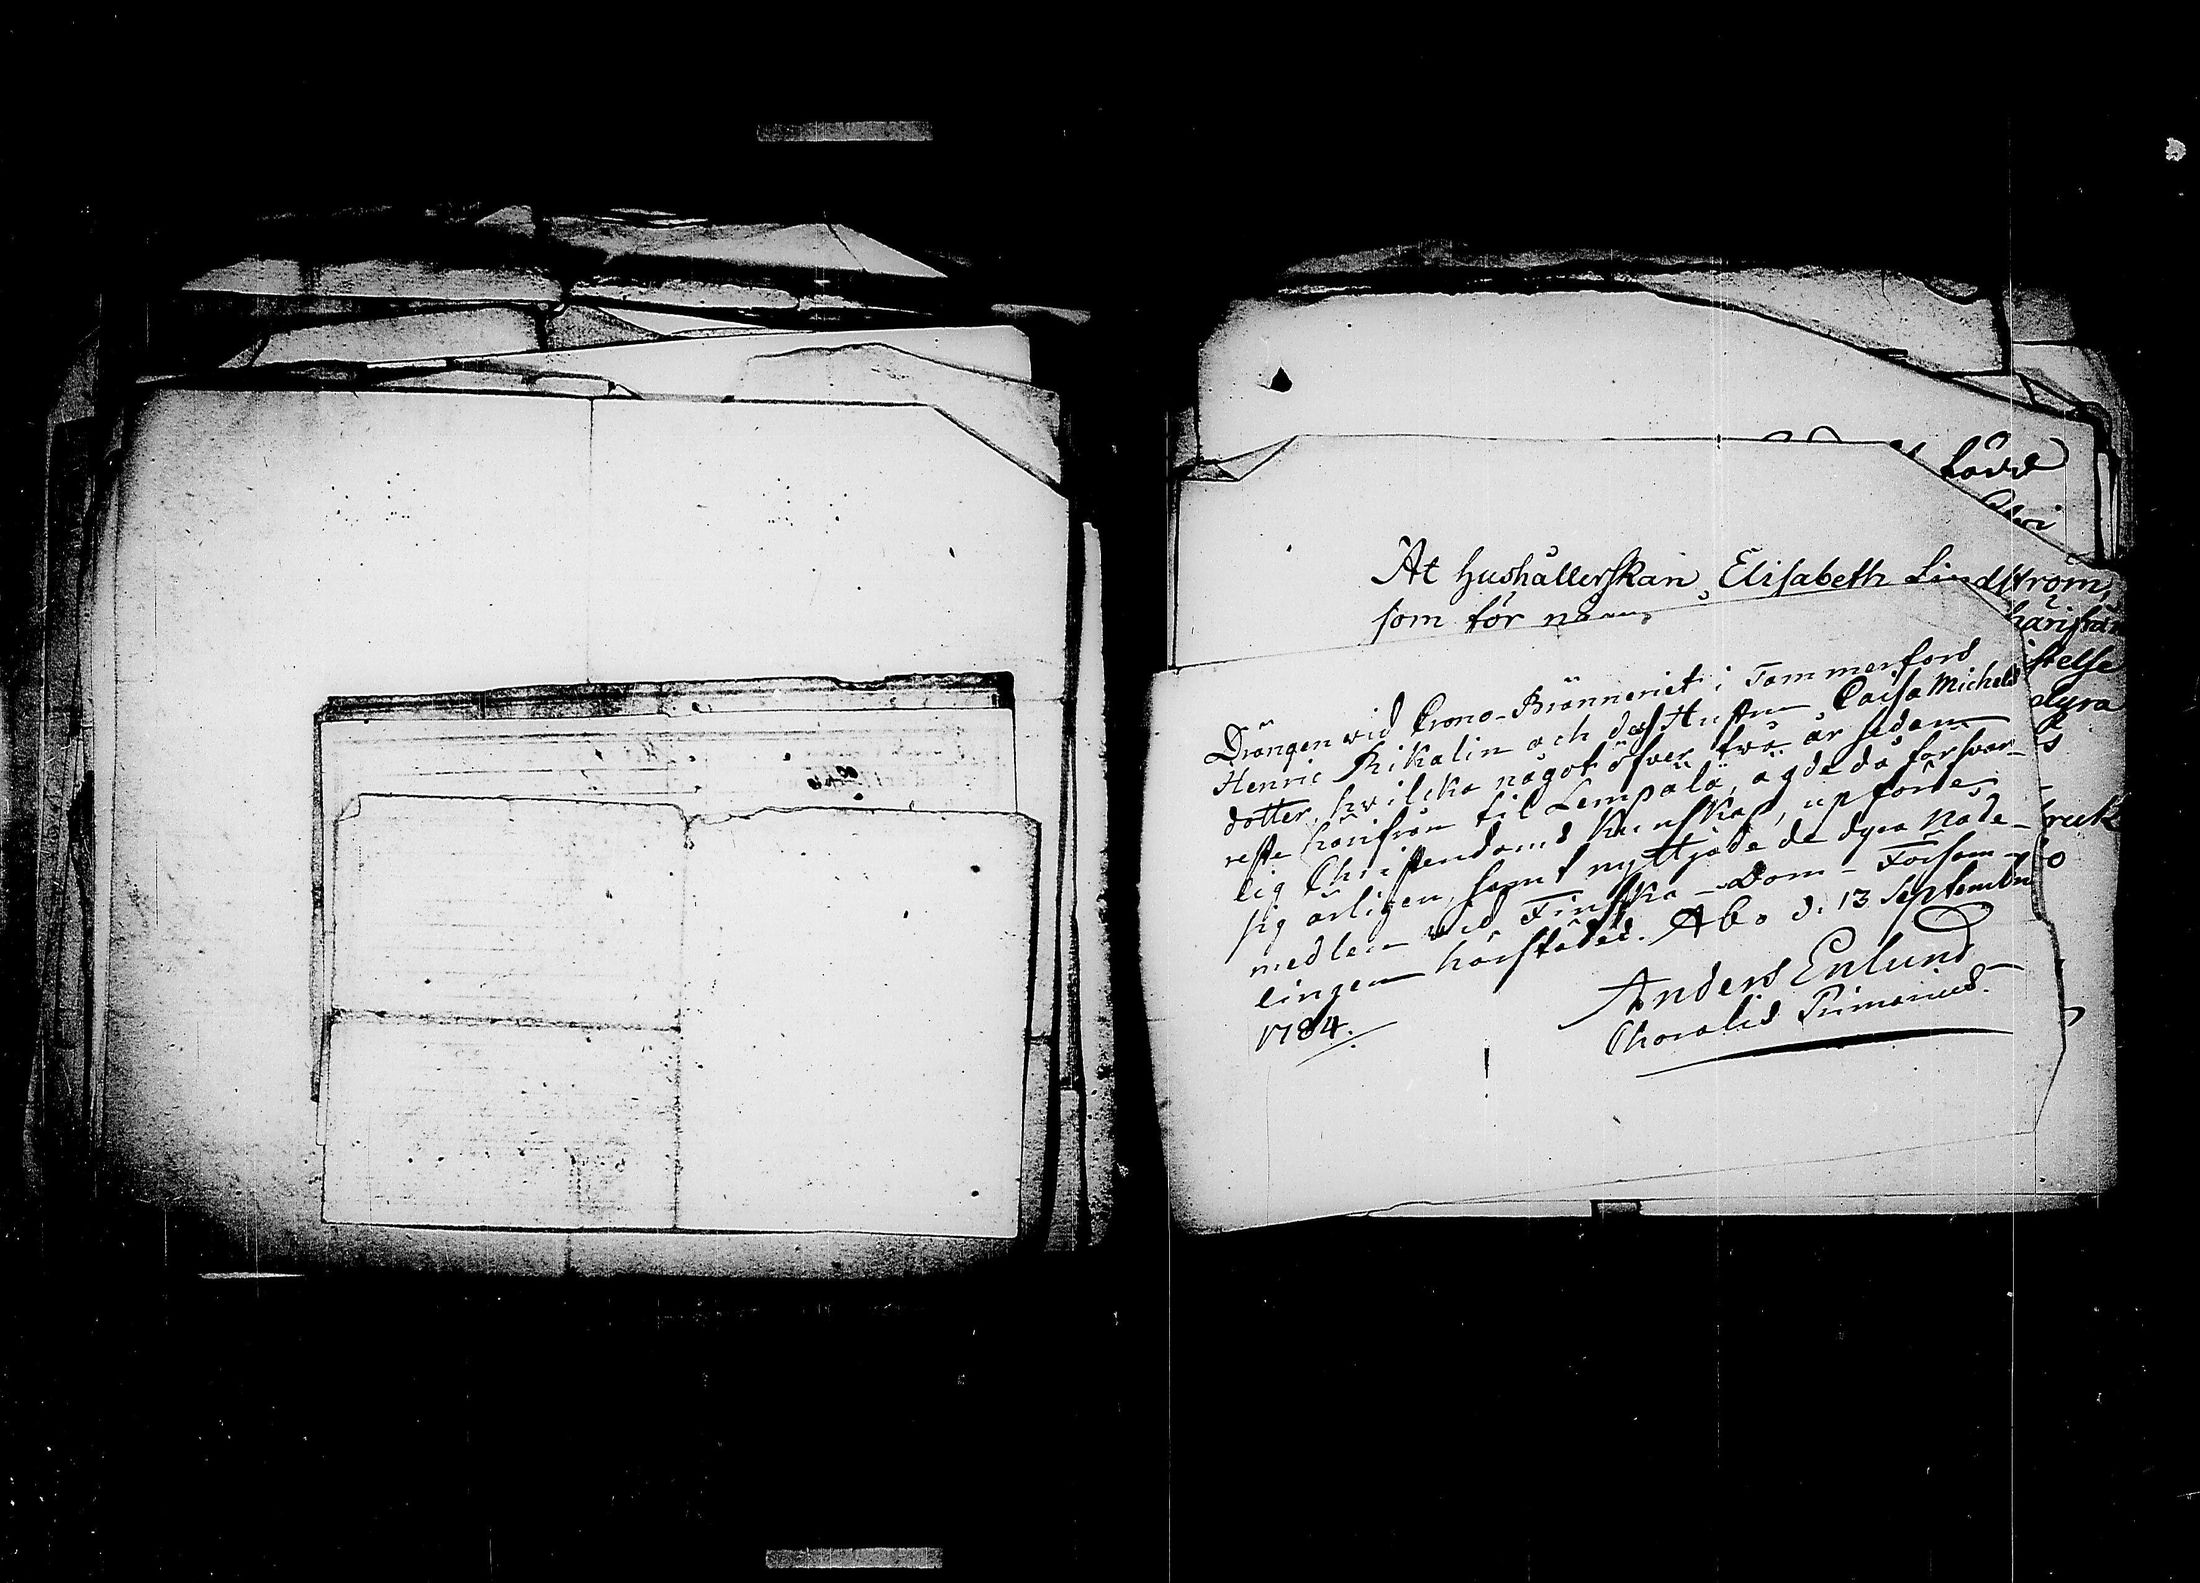 Lärd
At hushållerskan, Elisabeth Lindström,
som för
härifrån
Drängen vid Crono-Bränneriet i Tammerfors
Henric Rikalin och dess Hustru Caisa Michels
dotter, hvilcka något öfver två år sedan
reste härifrån til Lempälä, ägde då försvar-
lig Christendoms kunskap, upförde
sig ärligen, samt nyttjade de dyra Nåde-
medlen vid Finska-Dom-Försam-
lingen härstädes. Åbo d. 13 September
1784.
Anders Enlund
Choralis Primarius.
stelse
dyra
ruk